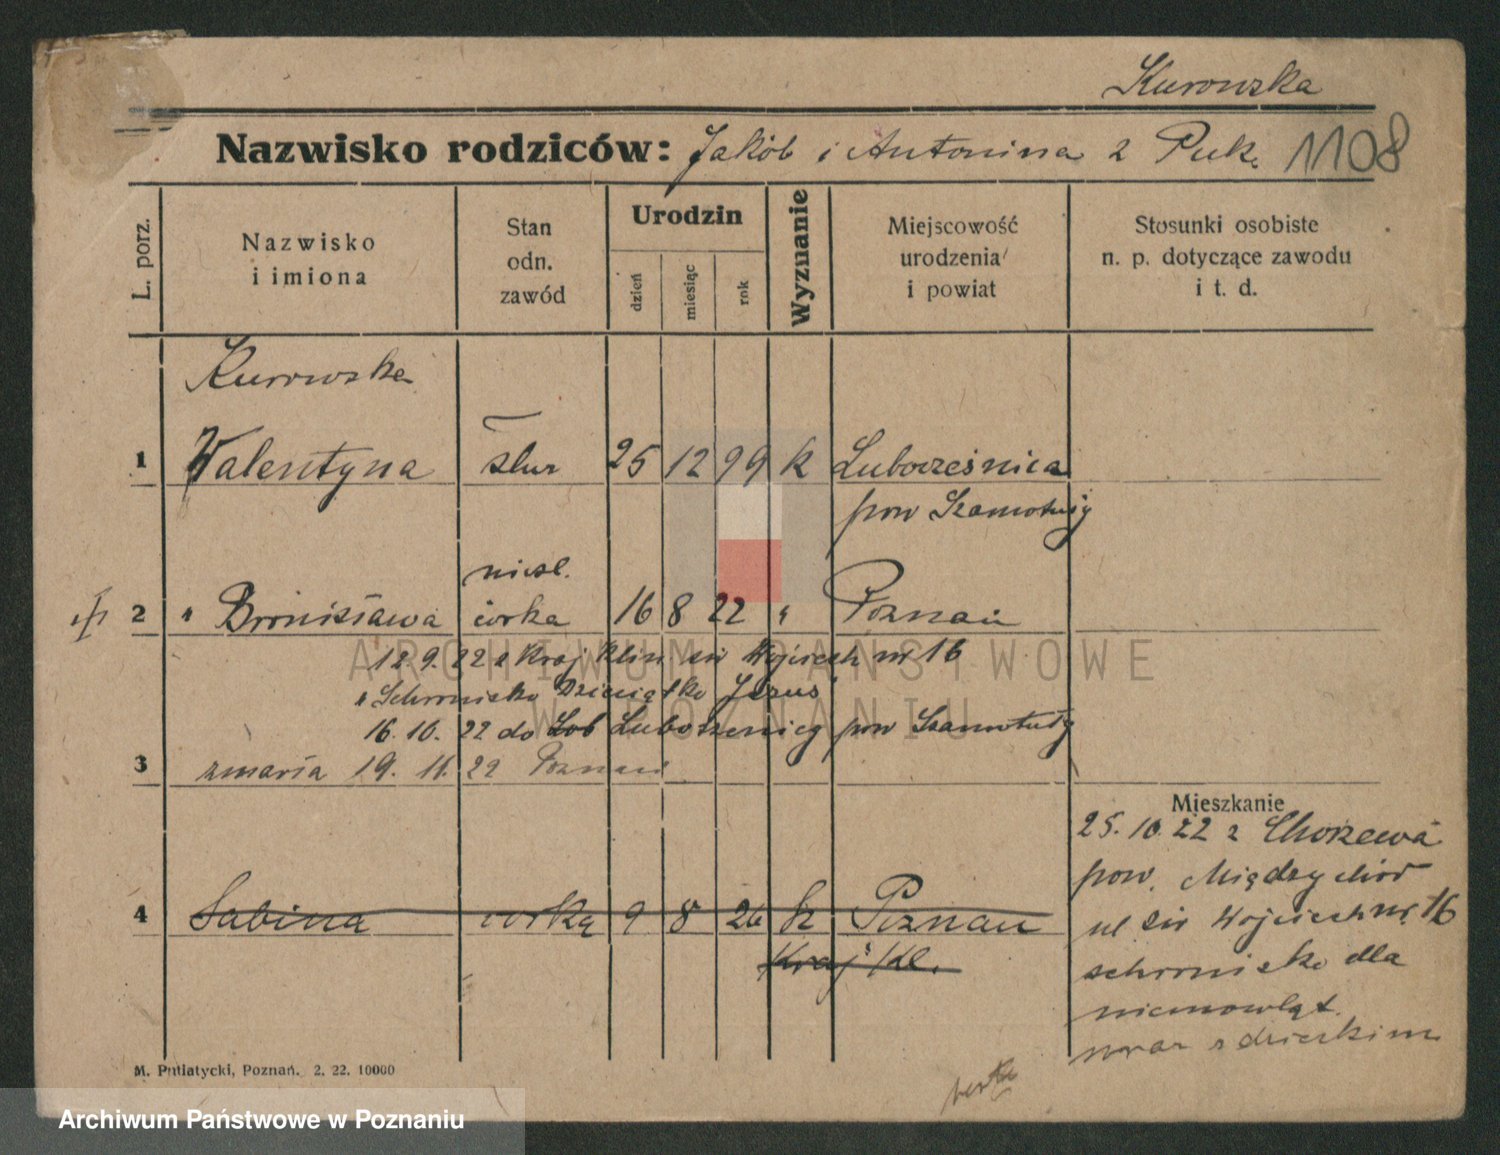 Kurowska
Nazwisko rodziców: Jakób i Antonina z Puk 1108
L. porz.
Nazwisko
i imiona
Stan
odn.
zawód
Urodzin
dzień
miesiąc
rok
Wyznanie
Miejscowość
urodzenia
i powiat
Stosunki osobiste
n. p. dotyczące zawodu
i t. d.
Kurowska
1 Walentyna służ 25 12 99 k Lubocześnica
pow Szamotuły
nieśl.
2 " Bronisława córka 16 8 22 " Poznań
12.9.22 z Kraj Klin św Wojciech nr 16
" Schronisko Dzieciątko Jezus
16.10.22 do Lubosenicy pow Szamotuły
3 zmarła 19. 11. 22 Poznań
Mieszkanie
25.10.22 z Chorzewa
pow. Międzychód
4 Sabina córka 9 8 26 k Poznań
Kraj Kl.
ul św Wojciech nr 16
schronisko dla
niemowląt.
wraz z dzieckiem
M. Putiatycki, Poznań. 2. 22. 10000
ARCHIWUM PAŃSTWOWE
W POZNANIU
Archiwum Państwowe w Poznaniu